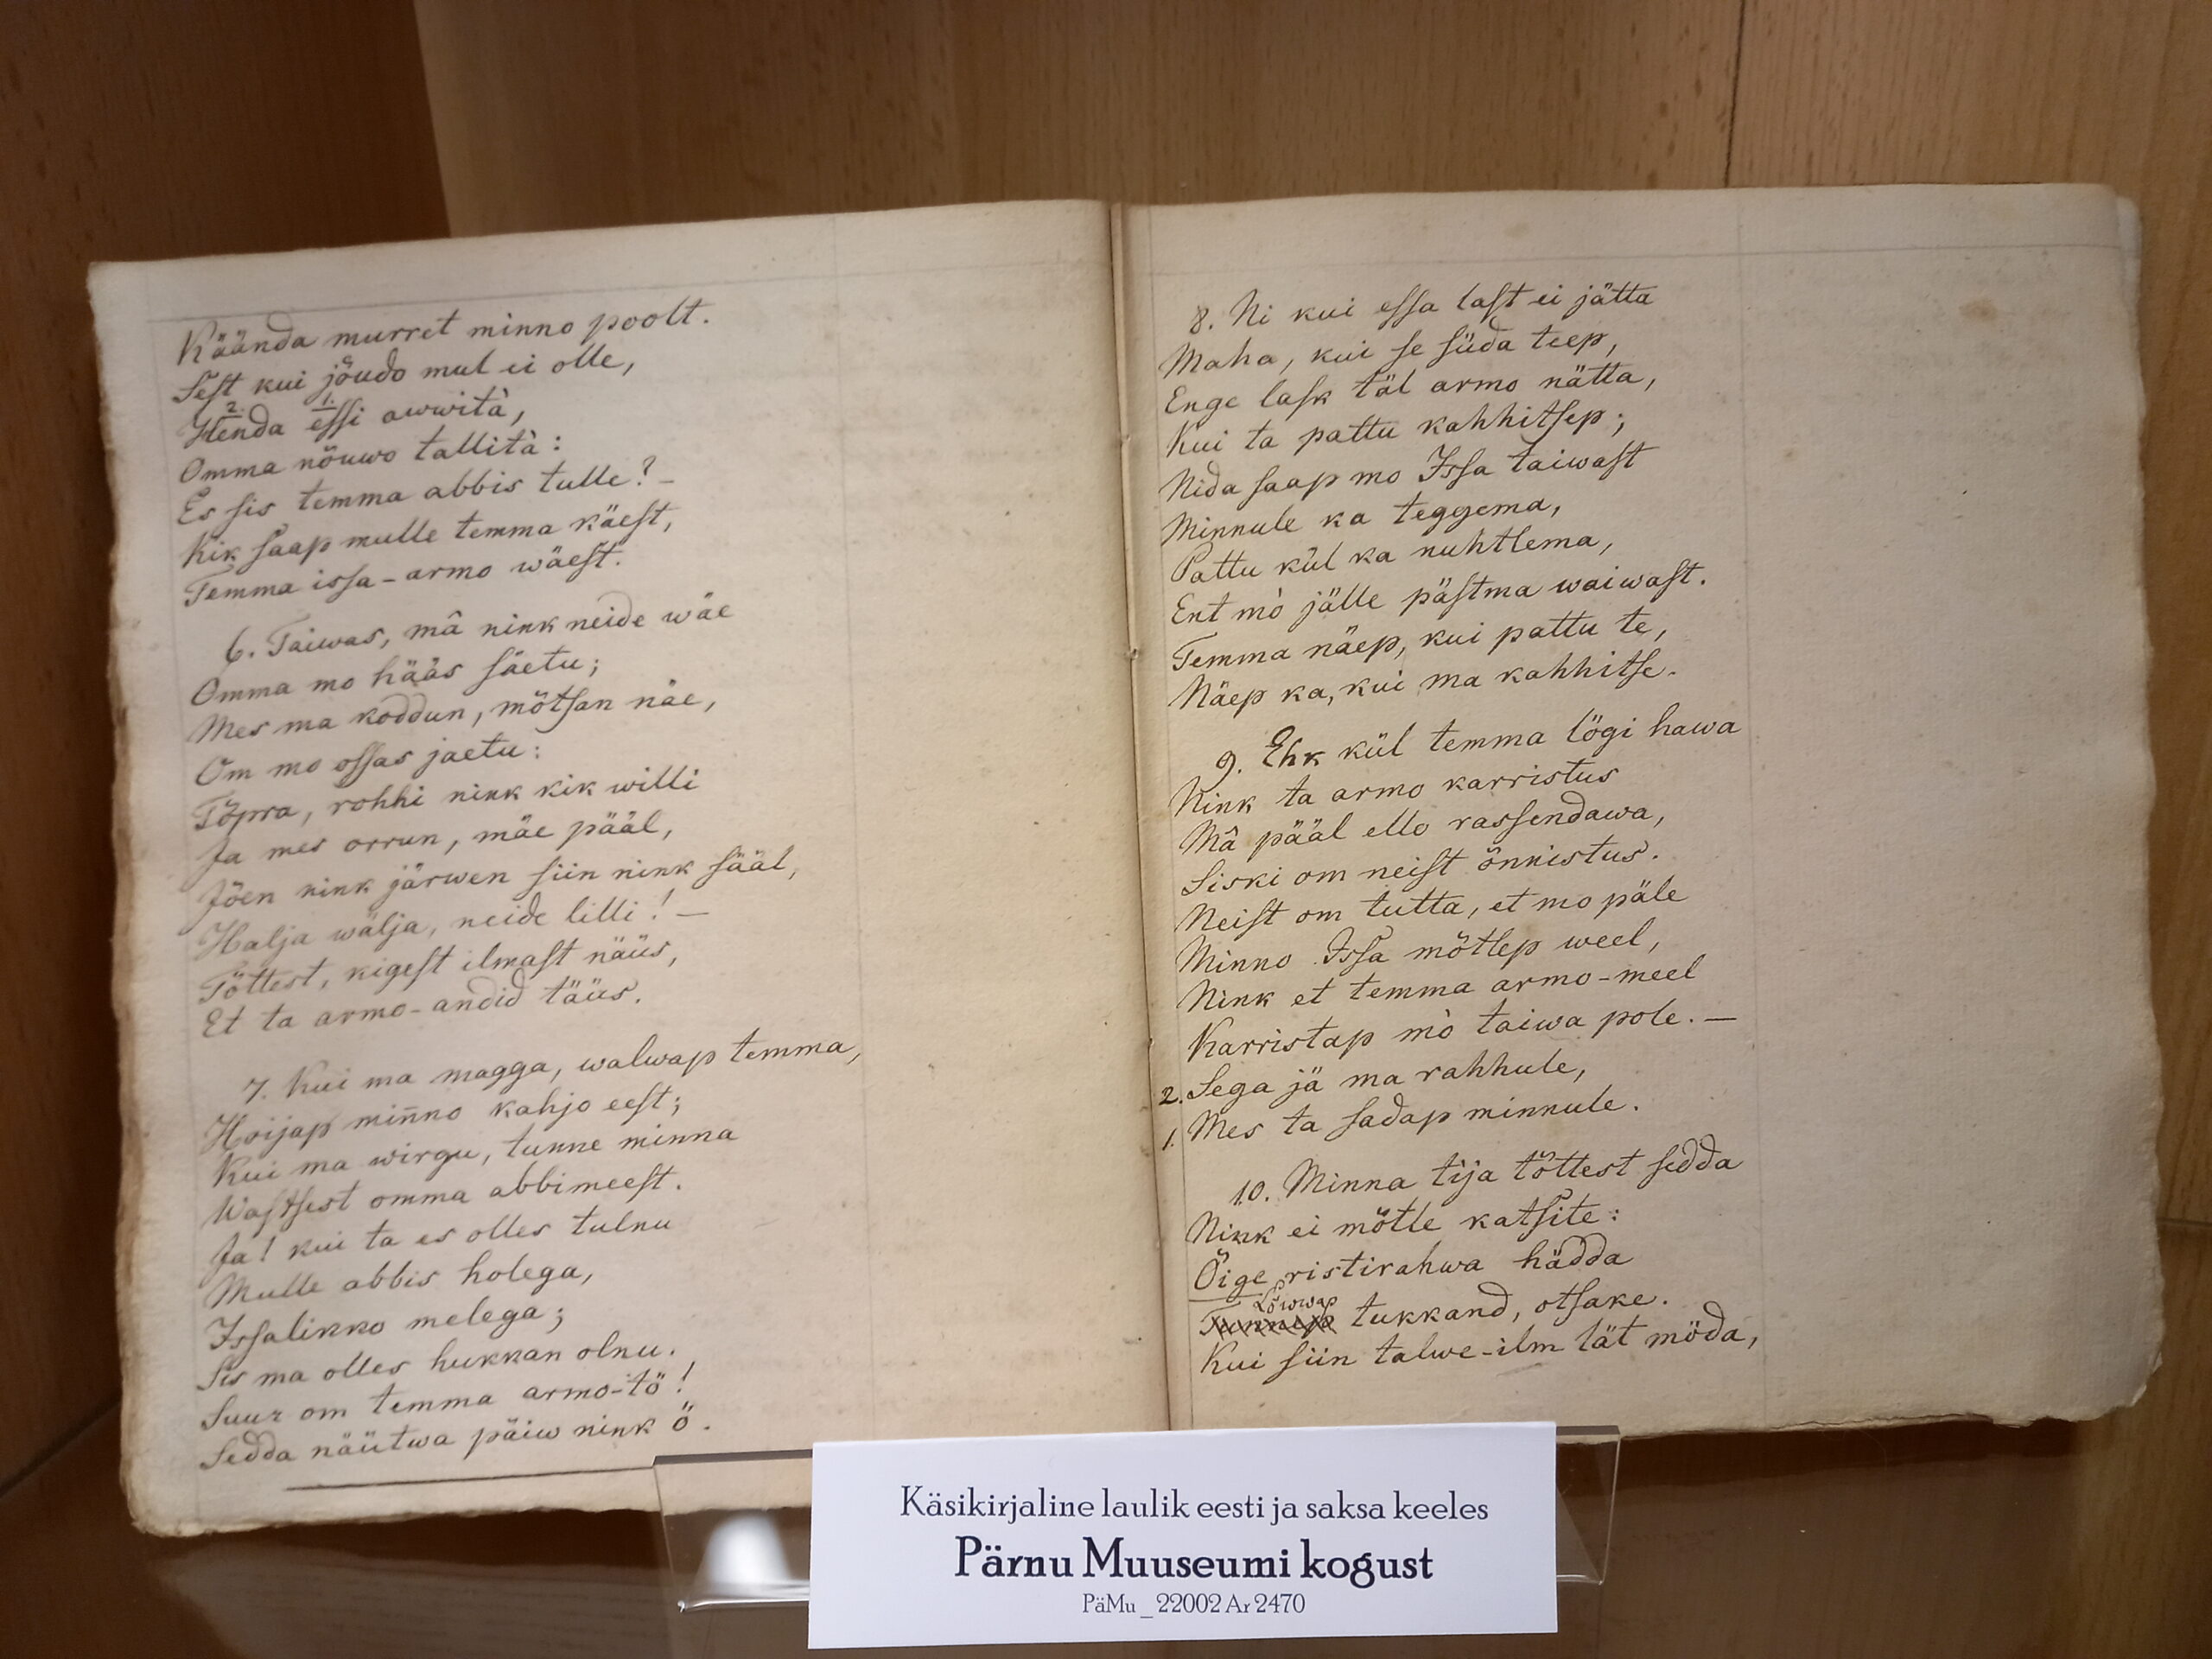 Käända murret minno poolt.
Sest kui jöudo mul ei olle,
2. 1.
Henda essi awwità,
Omma nöuwo tallità:
Es sis temma abbis tulle? –
Kik saap mulle temma käest,
Temma issa-armo wäest.
6. Taiwas, mâ nink neide wäe
Omma mo hääs säetu;
Mes ma koddun, mötsan näe,
Om mo ossas jaetu:
Töpra, rohhi nink kik willi
Ja mes orrun, mäe pääl,
Jöen nink järwen siin nink sääl,
Halja wälja, neide lilli! –
Töttest, kigest ilmast näüs,
Et ta armo-andid täüs.
7. Kui ma magga, walwap temma,
Hoijap miñno kahjo eest;
Kui ma wirgu, tunne minna
Wastsest omma abbimeest.
Ja! kui ta es olles tulnu
Mulle abbis holega,
Issalikko melega;
Sis ma olles hukkan olnu.
Suur om temma armo-tö!
Sedda näütwa päiw nink ö.
8. Ni kui essa last ei jätta
Maha, kui se süda teep,
Enge lask täl armo nätta,
Kui ta pattu kahhitsep;
Nida saap mo Issa taiwast
Minnule ka teggema,
Pattu kül ka nuhtlema,
Ent mò jälle pästma waiwast.
Temma näep, kui pattu te,
Näep ka, kui ma kahhitse.
9. Ehk kül temma lögi hawa
Nink ta armo karristus
Mâ pääl ello rassendawa,
Siski om neist önnistus.
Neist om tutta, et mo päle
Minno Issa mötlep weel,
Nink et temma armo-meel
Karristap mò taiwa pole. –
2. Sega jä ma rahhule,
1. Mes ta sadap minnule.
10. Minna tija töttest sedda
Nink ei mötle katsite:
Öige ristirahwa hädda
Löwwap
Tunnep tukkand, otsake.
Kui siin talwe-ilm lät möda,
Käsikirjaline laulik eesti ja saksa keeles
Pärnu Muuseumi kogust
PäMu _ 22002 Ar 2470